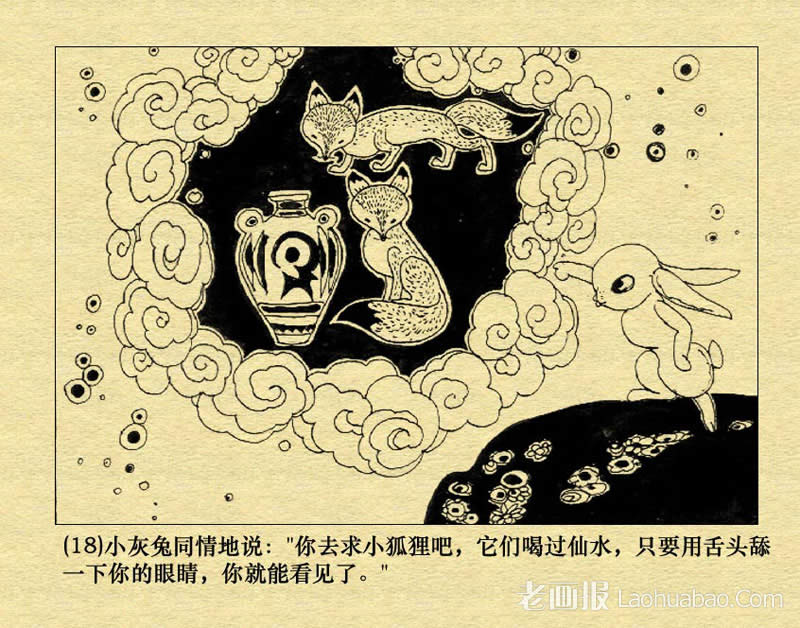 (18)小灰兔同情地说："你去求小狐狸吧，它们喝过仙水，只要用舌头舔
一下你的眼睛，你就能看见了。"
老画报 Laohuabao.Com